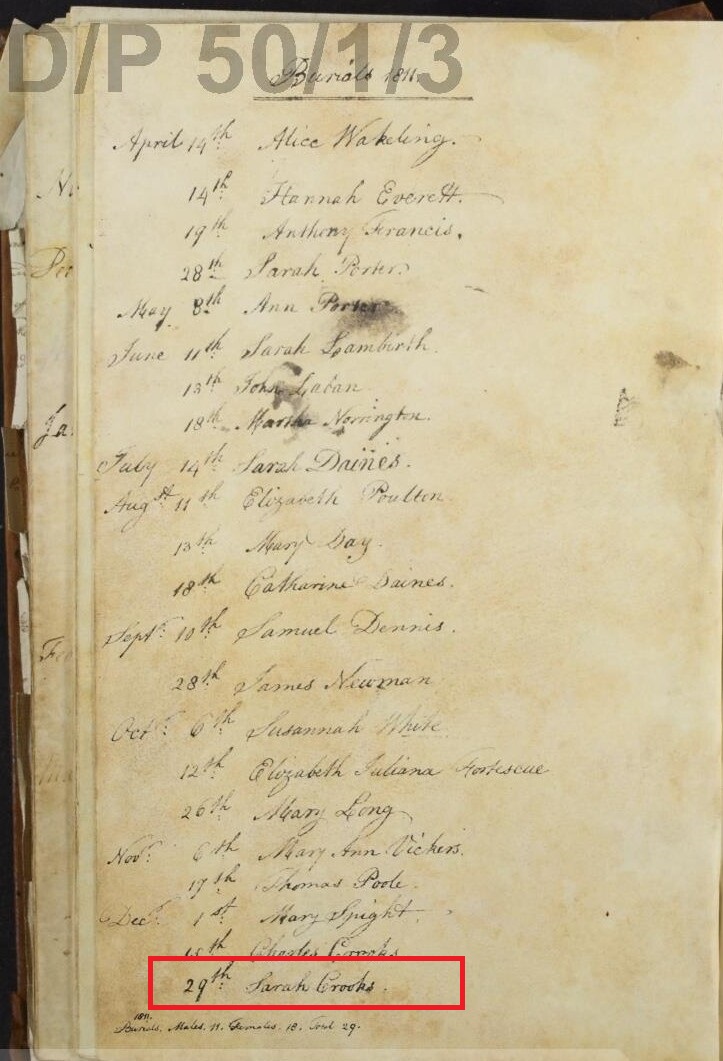 D/P 50/1/3
Burials 1811.
April 14th Alice Wakeling.
14th Hannah Everett.
19th Anthony Francis.
28th Sarah Porter.
May 8th Ann Porter
June 11th Sarah Lambirth.
13th John Laban
18th Martha Norrington.
July 14th Sarah Daines.
Augst. 11th Elizabeth Poulton
13th Mary Day.
18th Catharine Daines.
Septr. 10th Samuel Dennis.
28th James Newman
Octr. 6th Susannah White.
12th Elizabeth Juliana Fortescue
26th Mary Long
Novr. 6th Mary Ann Vickers.
17th Thomas Poole.
Decr. 1st Mary Spight.
15th Charles Crooks
29th Sarah Crooks.
1811.
Burials. Males. 11. Females. 18. Total 29.